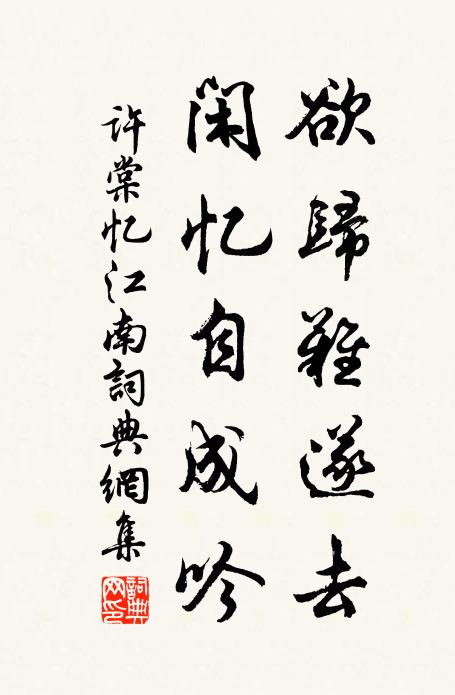 欲歸難遂去
闲忆自成吟
许棠忆江南詞典網集
詞典网印